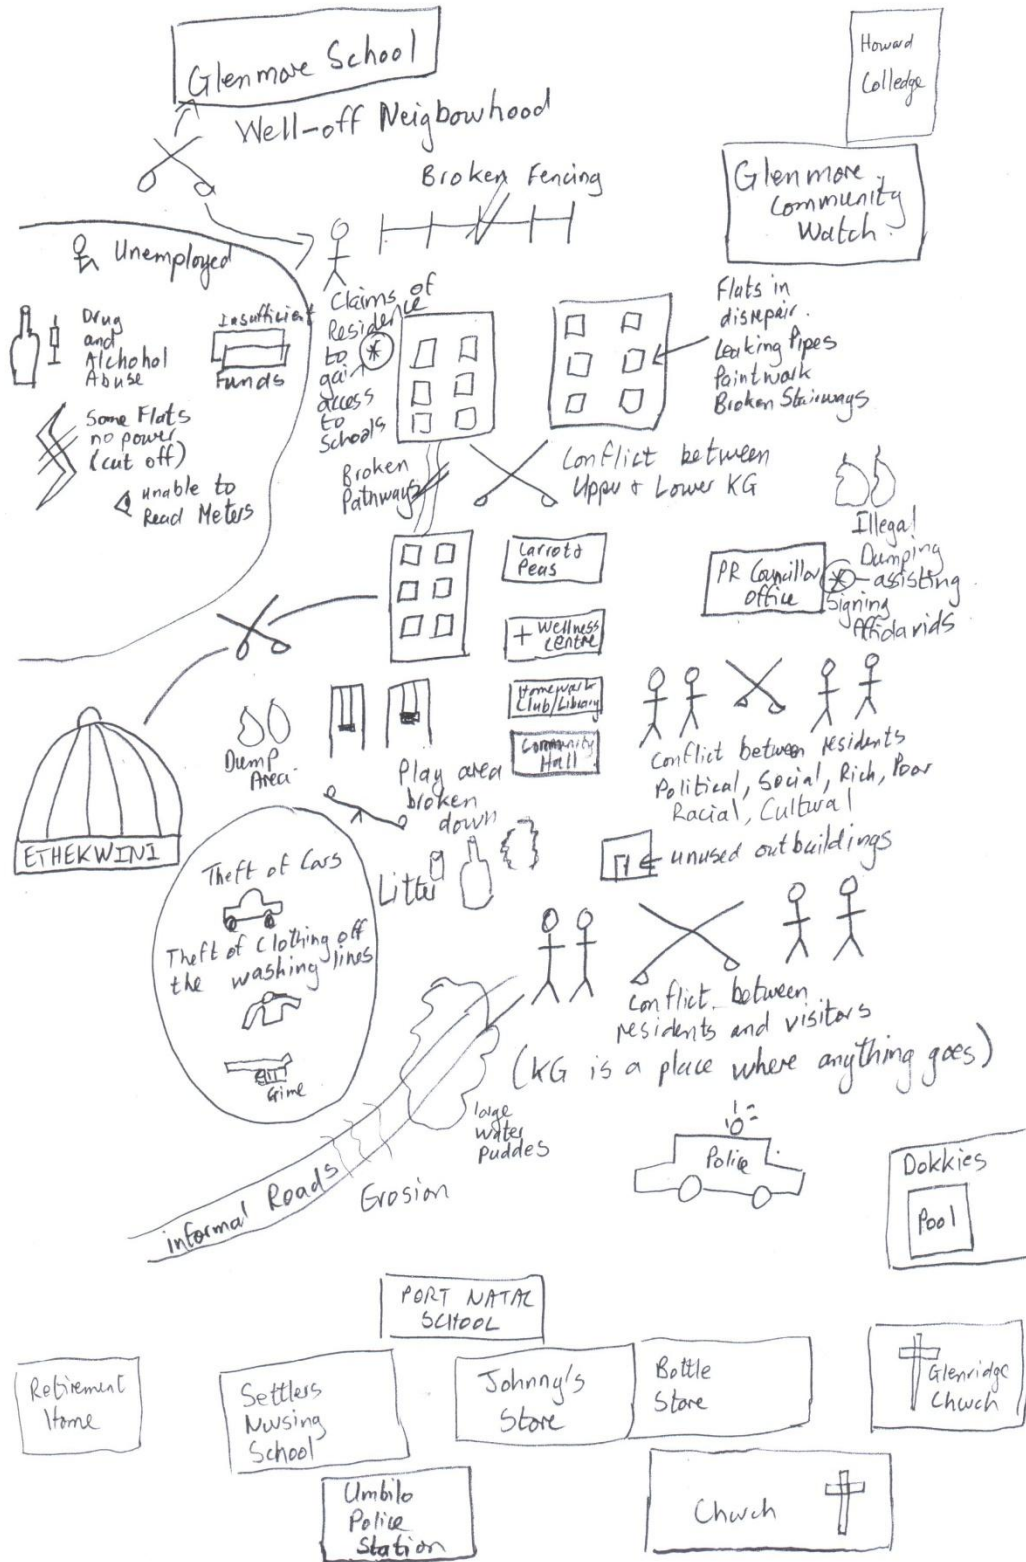 Glenmore School
Howard
Colledge
Well-off Neigbowhood
Broken Fencing
Glenmore
Community
Watch
Unemployed
Drug
and
Alchohol
Abuse
Insufficient
Funds
Some Flats
no power
(cut off)
unable to
Read Meters
Claims of
Residence
to
gain
access
to
Schools
Flats in
disrepair.
Leaking Pipes
Paintwork
Broken Stairways
Broken
Pathways
Conflict between
Upper & Lower KG
Illegal
Dumping
Carrots
Peas
PR Councillor
Office
assisting
Signing
Affidavids
+ Wellness
Centre
Homework
Club/Library
Community
Hall
Conflict between residents
Political, Social, Rich, Poor
Racial, Cultural
Dump
Area
Play area
broken
down
ETHEKWINI
unused outbuildings
Litter
Theft of Cars
Theft of Clothing off
the washing lines
Crime
Conflict between
residents and visitors
(KG is a place where anything goes)
large
water
puddes
Police
informal Roads
Erosion
Dokkies
Pool
PORT NATAL
SCHOOL
Retirement
Home
Settlers
Nursing
School
Johnny's
Store
Bottle
Store
Glenridge
Church
Umbilo
Police
Station
Church